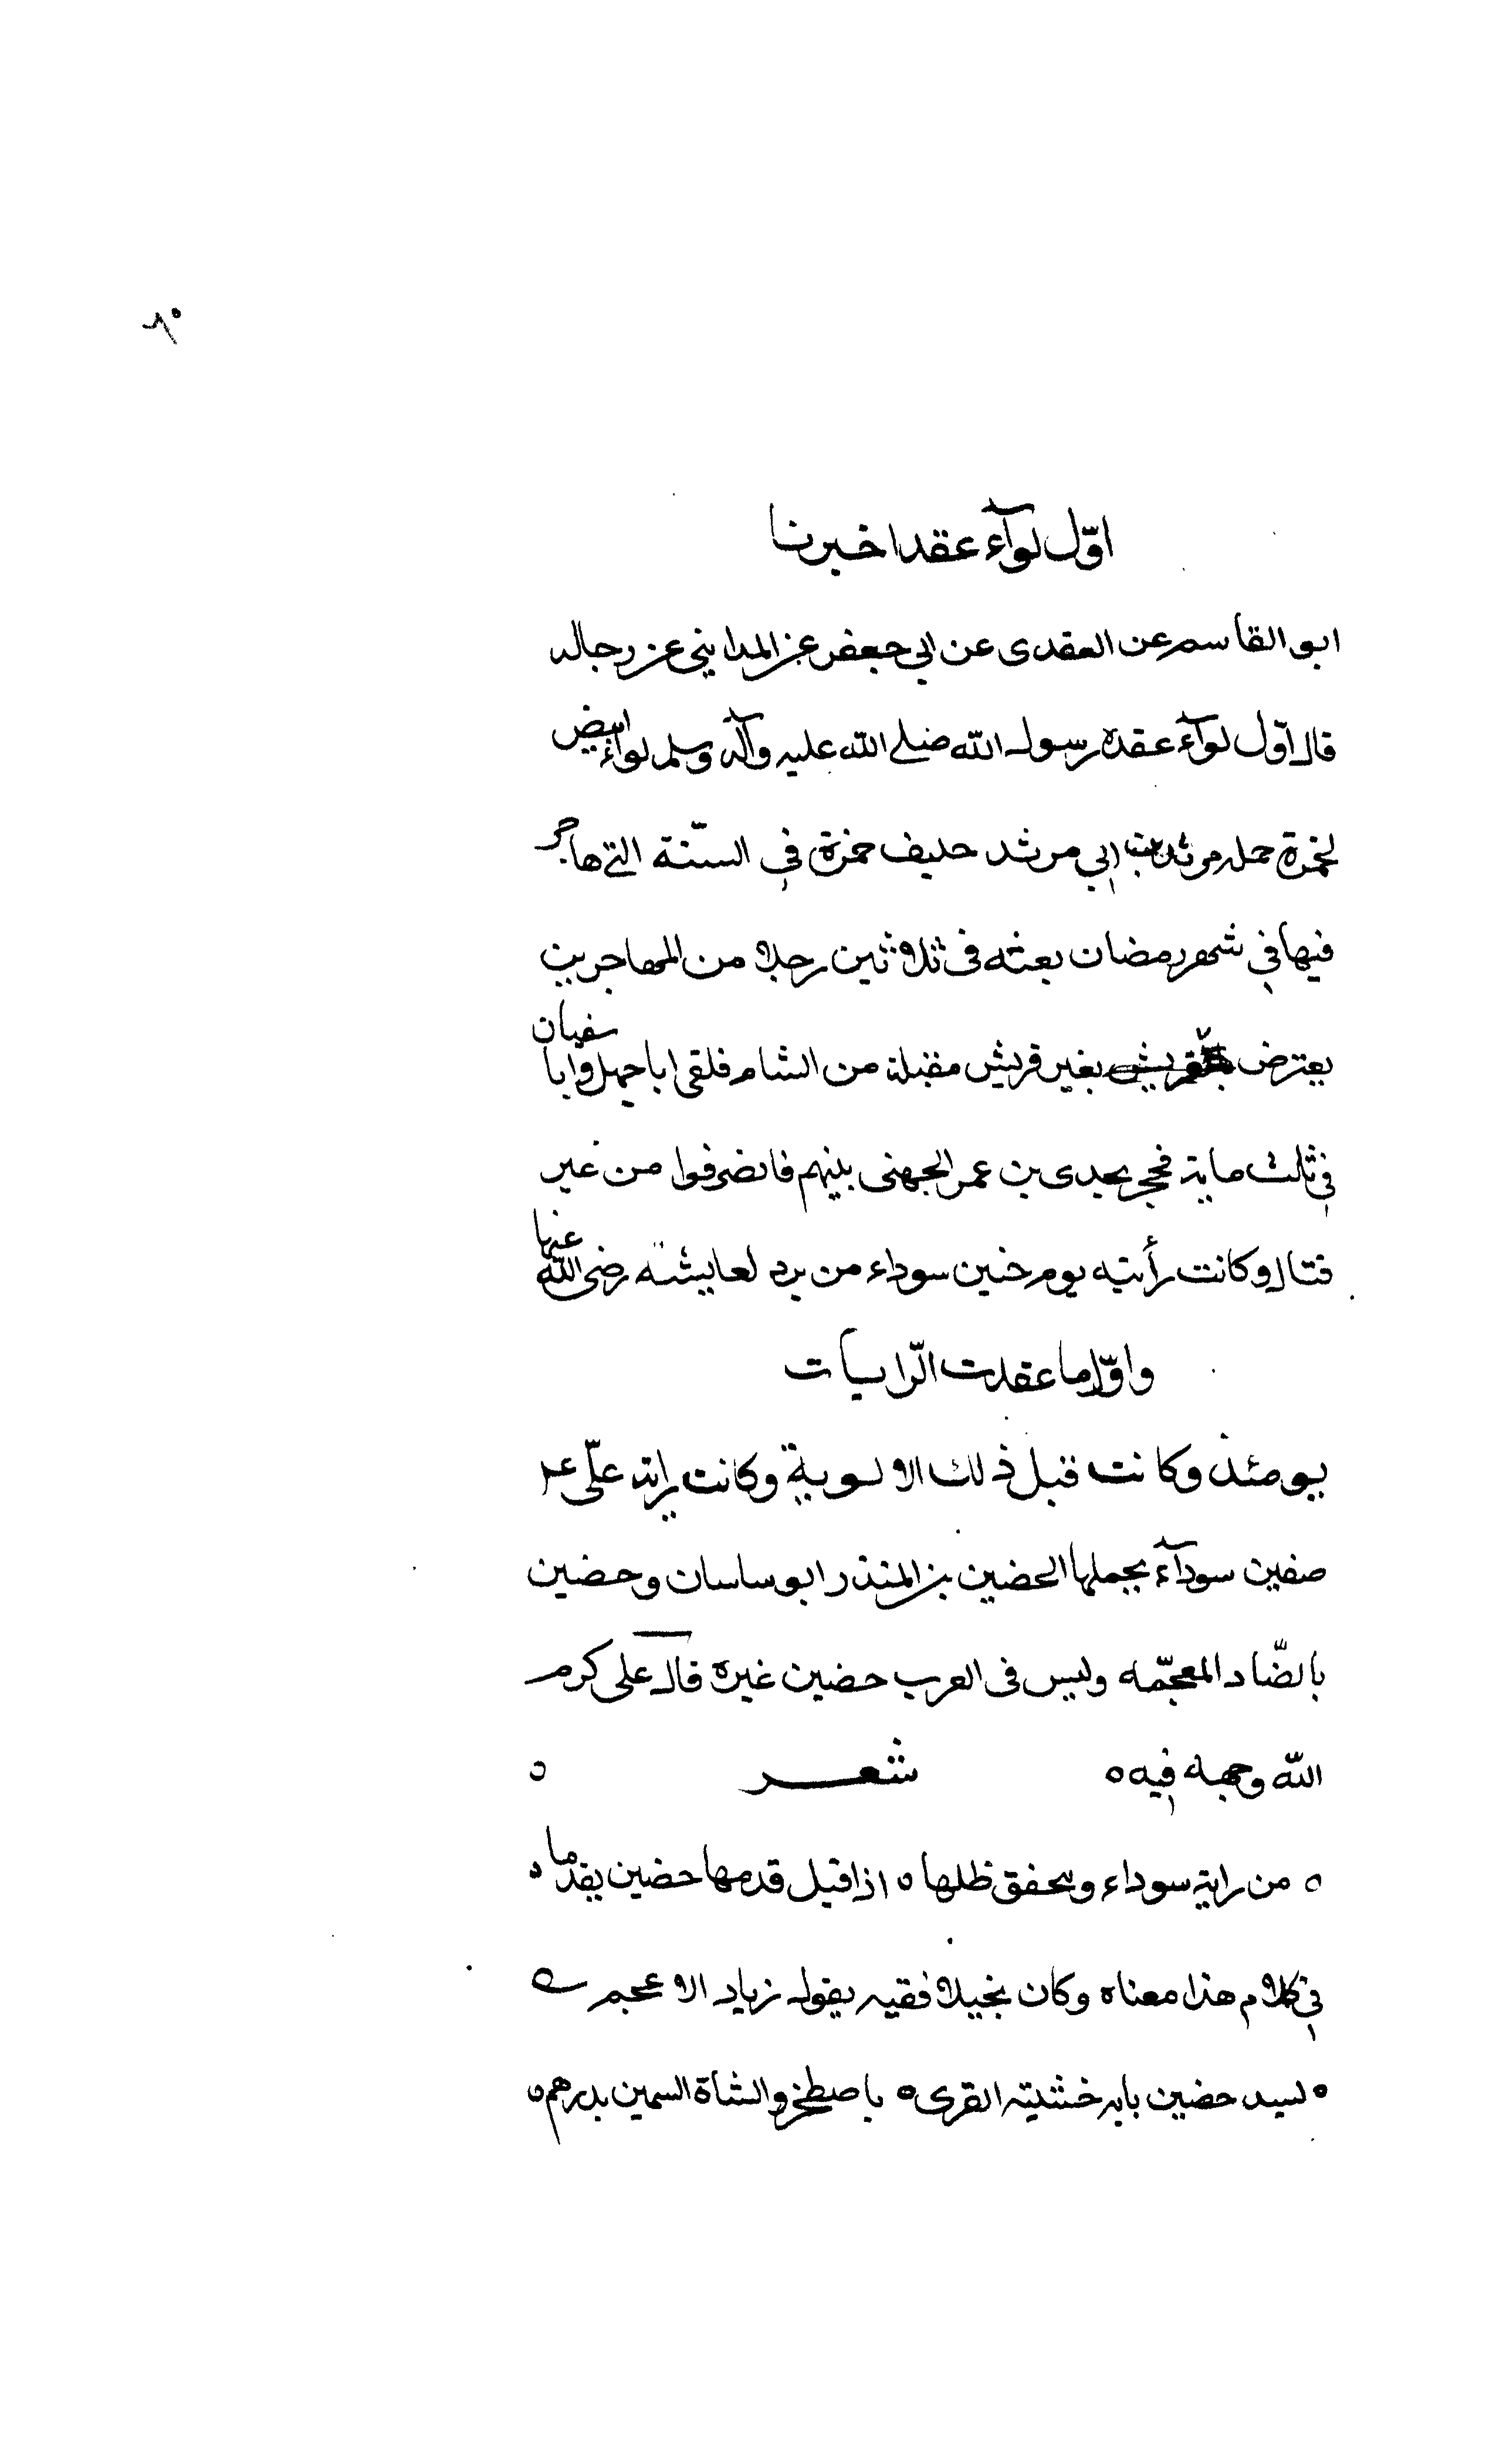 ٦٠
اوّل لوآء عقد اخبرنا
ابو القاسم عن العقدى عن ابي جعفر عن المدايني عن رجاله
قال اوّل لوآء عقده رسول الله صلى الله عليه وآله وسلم لواء ابيض
لحمزة حمله مرثد بن ابي مرثد حليف حمزة في السنة التي هاجر
فيها في شهر رمضان بعثه فى ثلاثين رجلا من المهاجرين
يعترض بعير قريش مقبلة من الشام فلقى ابا جهل وابا سفيان
في ثلث ماية فحجز بجدى بن عمر الجهنى بينهم فانصرفوا من غير
قتال وكانت رأيته يوم حنين سوداء من برد لعايشه رضى الله عنها
واوّل ما عقدت الرّايات
يومئذ وكانت قبل ذلك الالوية وكانت راية علّى عم
صفين سودآء يحملها الحضين بن المنذر ابو ساسان وحضين
بالضّاد المعجّمه وليس فى العرب حضين غيره قال على كرم
الله وجهه فيه ه شعر ه
ه من راية سوداء ويخفق ظلها ه اذا قيل قدمها حضين يقدما ه
في كلام هذا معناه وكان بخيلا فقيه يقول زياد الاعجم
ه لسيد حضين بابه خشيته القرى ه باصطخر والشاة السمين بدرهم ه